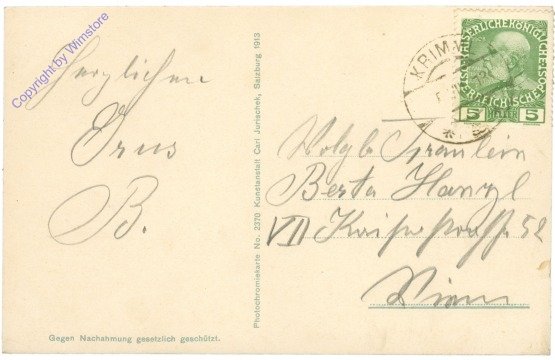 Copyright by Wimstore
Herzlichen
Gruss
B.
Gegen Nachahmung gesetzlich geschützt.
Photochromiekarte No. 2370 Kunstanstalt Carl Jurischek, Salzburg 1913
KRIMML
KAISERLICHE KÖNIGLICHE
ÖSTERREICHISCHE POST
5 HELLER 5
Wolgb Fräulein
Berta Hanzl
VII Kaiserstraße 52
Wien